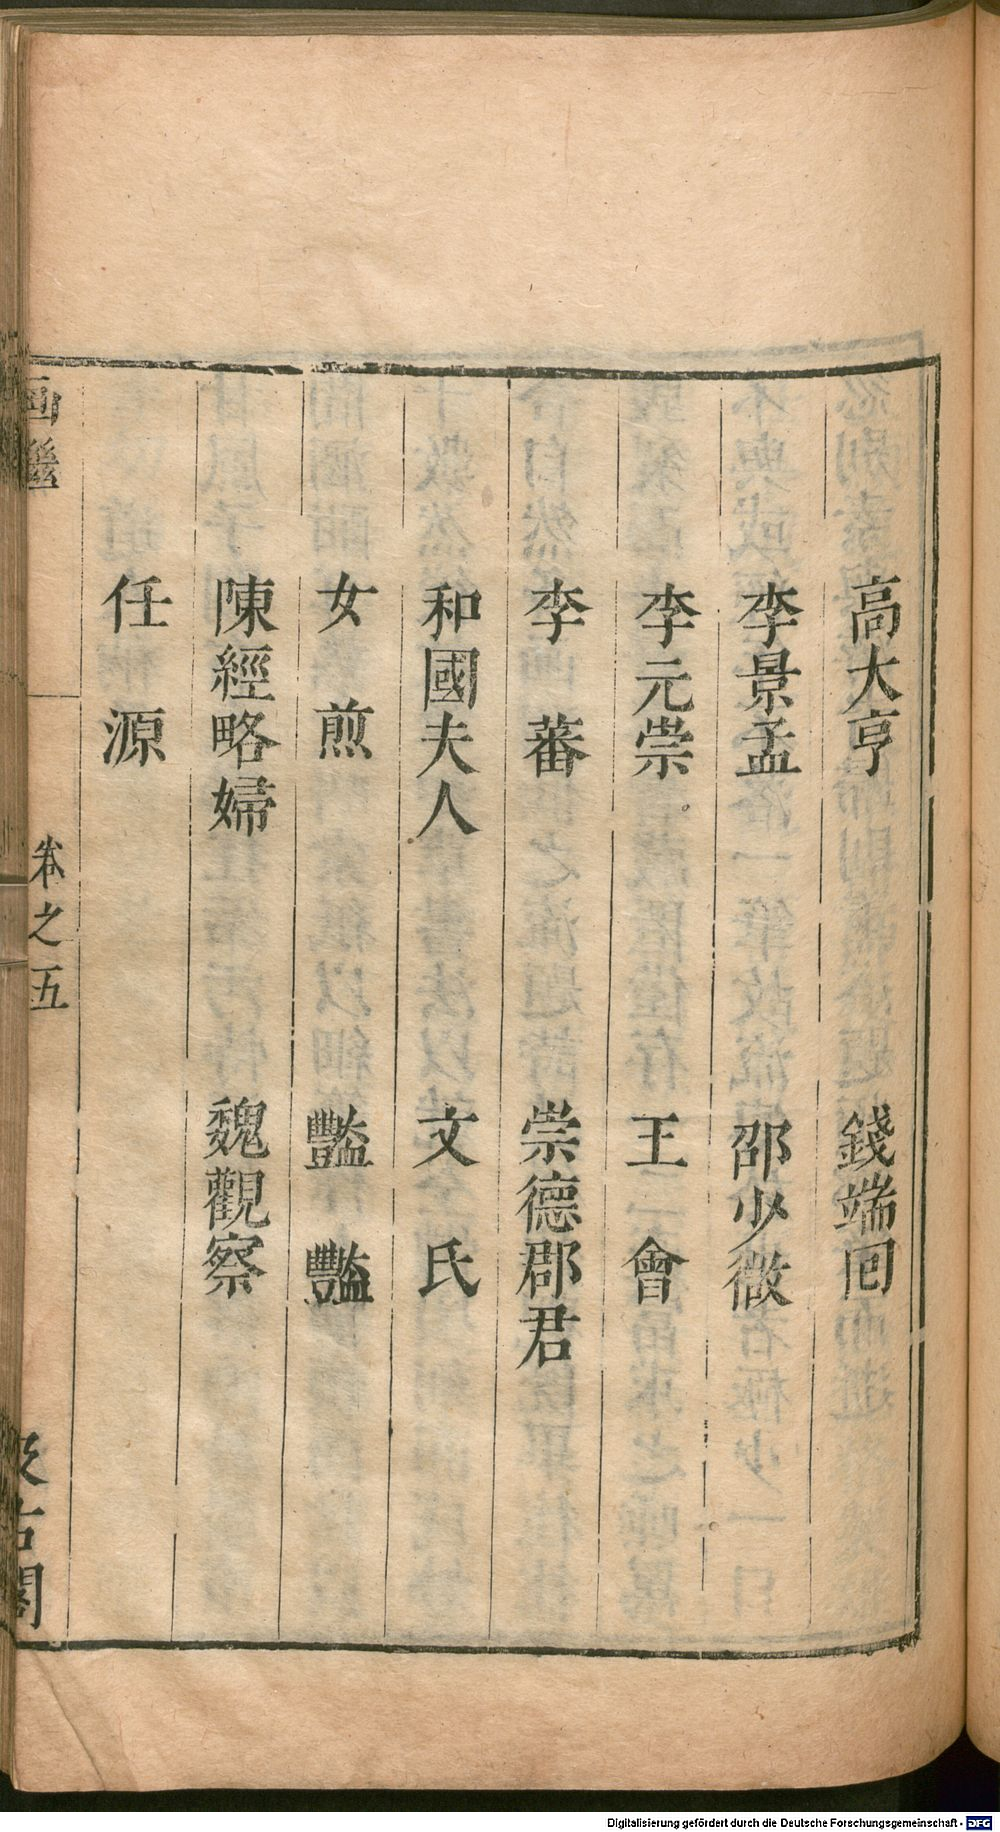 高大亨　錢端囘
李景孟　邵少微
李元崇　王　會
李　蕃　崇德郡君
和國夫人　文　氏
女　煎　豔　豔
陳經略婦　魏觀察
任　源
画繼　卷之五　汲古閣
Digitalisierung gefördert durch die Deutsche Forschungsgemeinschaft - DFG